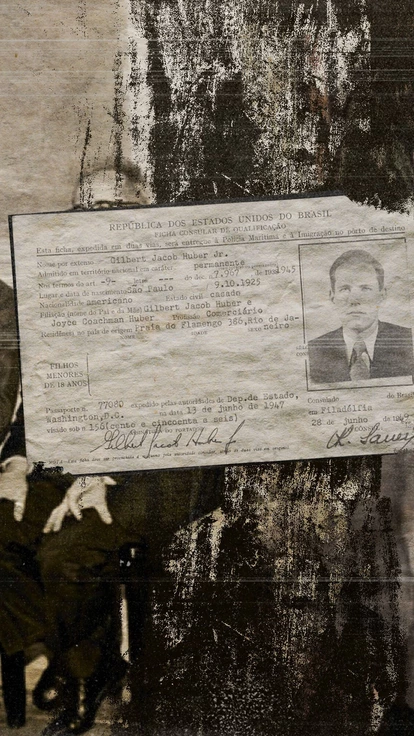 REPÚBLICA DOS ESTADOS UNIDOS DO BRASIL
FICHA CONSULAR DE QUALIFICAÇÃO
Esta ficha, expedida em duas vias, será entregue à Polícia Marítima e à Imigração no pôrto de destino
Nome por extenso Gilbert Jacob Huber Jr.
Admitido em território nacional em caráter permanente
Nos termos do art. -9- letra --- do dec. 7.967 de 1945
Lugar e data de nascimento São Paulo 9.10.1925
Nacionalidade americano Estado civil casado
Filiação (nome do Pai e da Mãe) Gilbert Jacob Huber e
Joyce Coachman Huber Profissão Comerciário
Residência no país de origem Praia do Flamengo 366, Rio de Ja-
neiro
FILHOS
MENORES
DE 18 ANOS
Passaporte n. 77080 expedido pelas autoridades de Dep. de Estado,
Washington, na data 13 de junho de 1947
visado sob n. 156(cento e cincoenta e seis)
Consulado do Brasil
em Filadélfia
28 de junho de 194